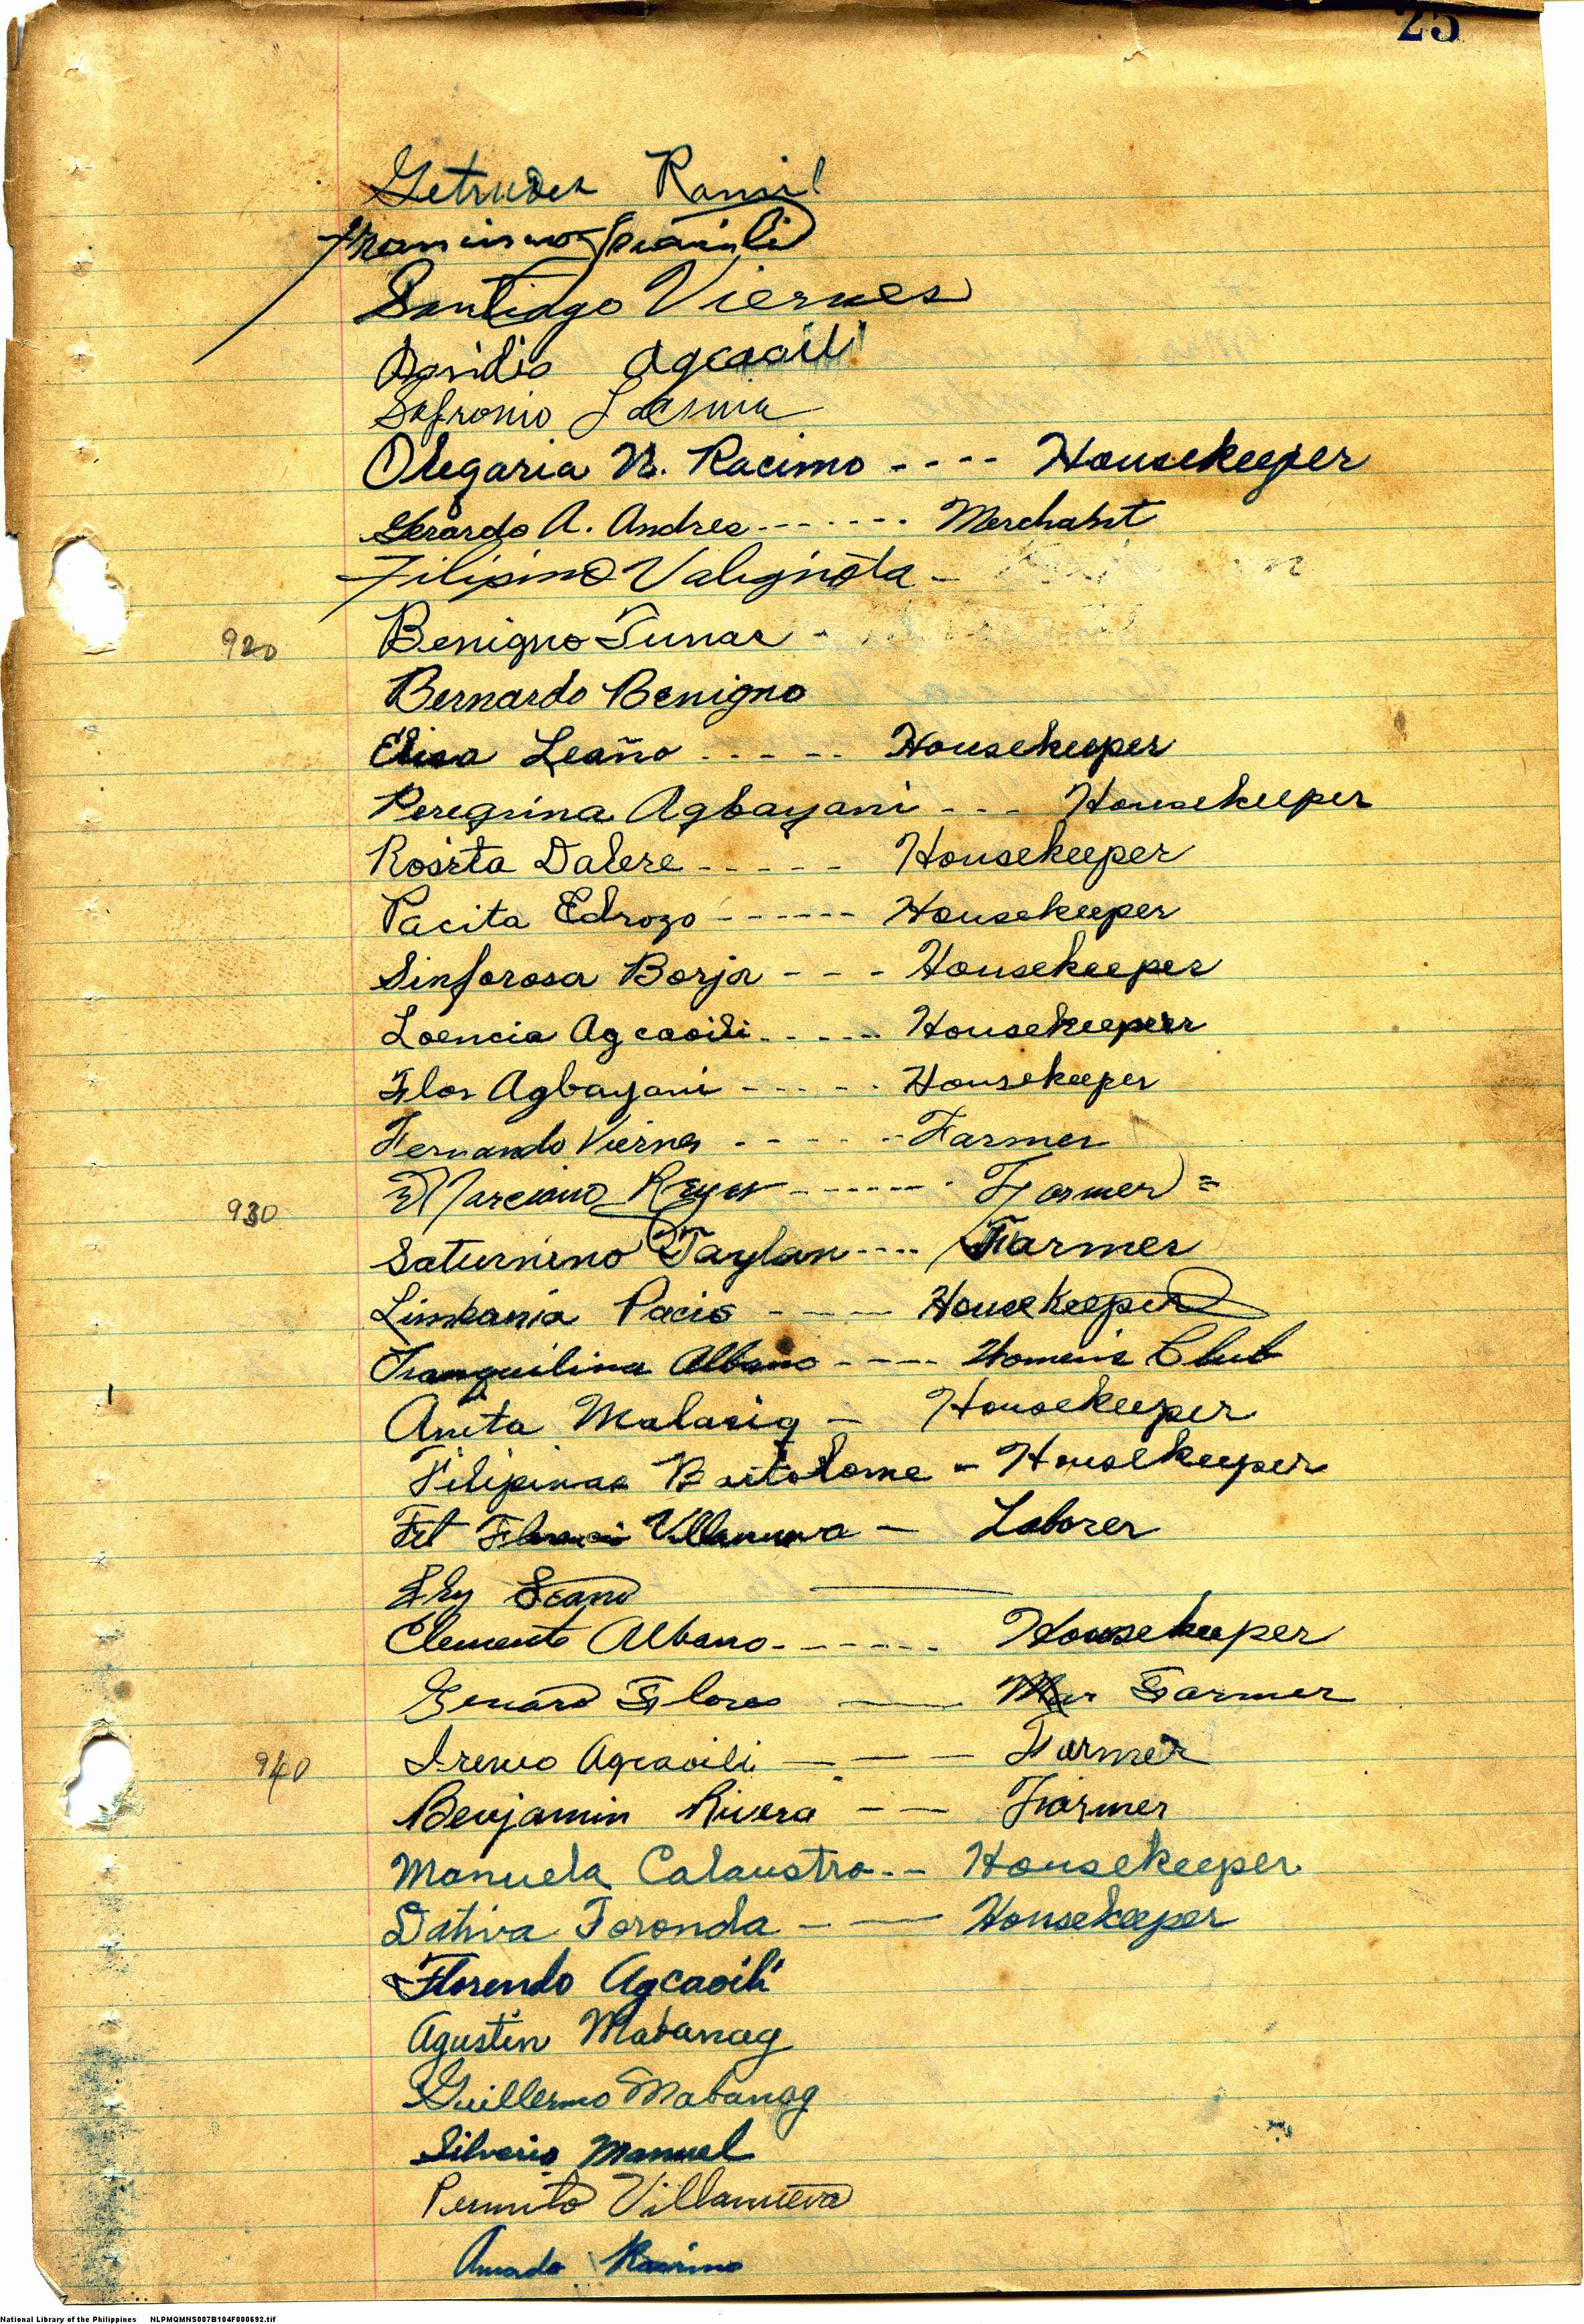 25
Getrudes Ramil
Santiago Viernes
Agcaoili
Sofronio Lacsina
Olegaria N. Racimo ---- Housekeeper
Gerardo A. Andres ------- Merchant
Filipino Valignota -
920 Benigno Tunar -
Bernardo Benigno
Elisa Leaño ----- Housekeeper
Peregrina Agbayani --- Housekeeper
Rosita Dalere ----- Housekeeper
Pacita Edrozo ------ Housekeeper
Sinforosa Borja --- Housekeeper
Loencia Agcaoili ----- Housekeeper
Flor Agbayani ----- Housekeeper
Fernando Viernes ----- Farmer
930 Marciano Reyes ------- Farmer =
Saturnino Taylan ---- Farmer
Limbania Pacis ---- Housekeeper
Tranquilina Albano ---- Women's Club
Anita Malasig - Housekeeper
Filipinas Bartolome - Housekeeper
Villanueva - Laborer
Clemente Albano ------ Housekeeper
Genaro Flores — Farmer
940 Ireneo Agcaoili — — — Farmer
Benjamin Rivera — — Farmer
Manuela Calaustro -- Housekeeper
Dativa Toronda - — Housekeeper
Florendo Agcaoili
Agustin Mabanag
Guillermo Mabanag
Silverio Manuel
Permito Villanueva
Amado Racimo
National Library of the Philippines NLPMQMNS007B104F000692.tif